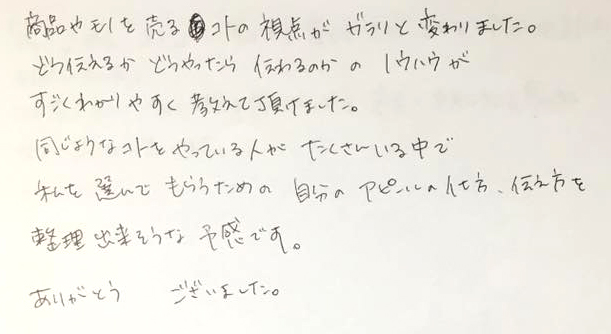 商品やモノを売るコトの視点がガラリと変わりました。
どう伝えるかどうやったら伝わるのかのノウハウが
すごくわかりやすく教えて頂けました。
同じようなコトをやっている人がたくさんいる中で
私を選んでもらうための自分のアピールの仕方、伝え方を
整理出来そうな予感です。
ありがとう ございました。